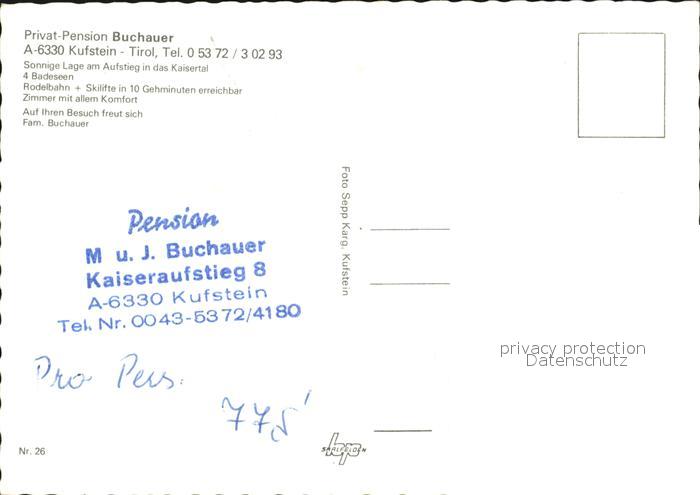 Privat-Pension Buchauer
A-6330 Kufstein - Tirol, Tel. 0 53 72 / 3 02 93
Sonnige Lage am Aufstieg in das Kaisertal
4 Badeseen
Rodelbahn + Skilifte in 10 Gehminuten erreichbar
Zimmer mit allem Komfort
Auf Ihren Besuch freut sich
Fam. Buchauer
Foto Sepp Karg, Kufstein
Pension
M u. J. Buchauer
Kaiseraufstieg 8
A-6330 Kufstein
Tel. Nr. 0043-5372/4180
Pro Pers.
privacy protection
Datenschutz
Nr. 26
SAALFELDEN